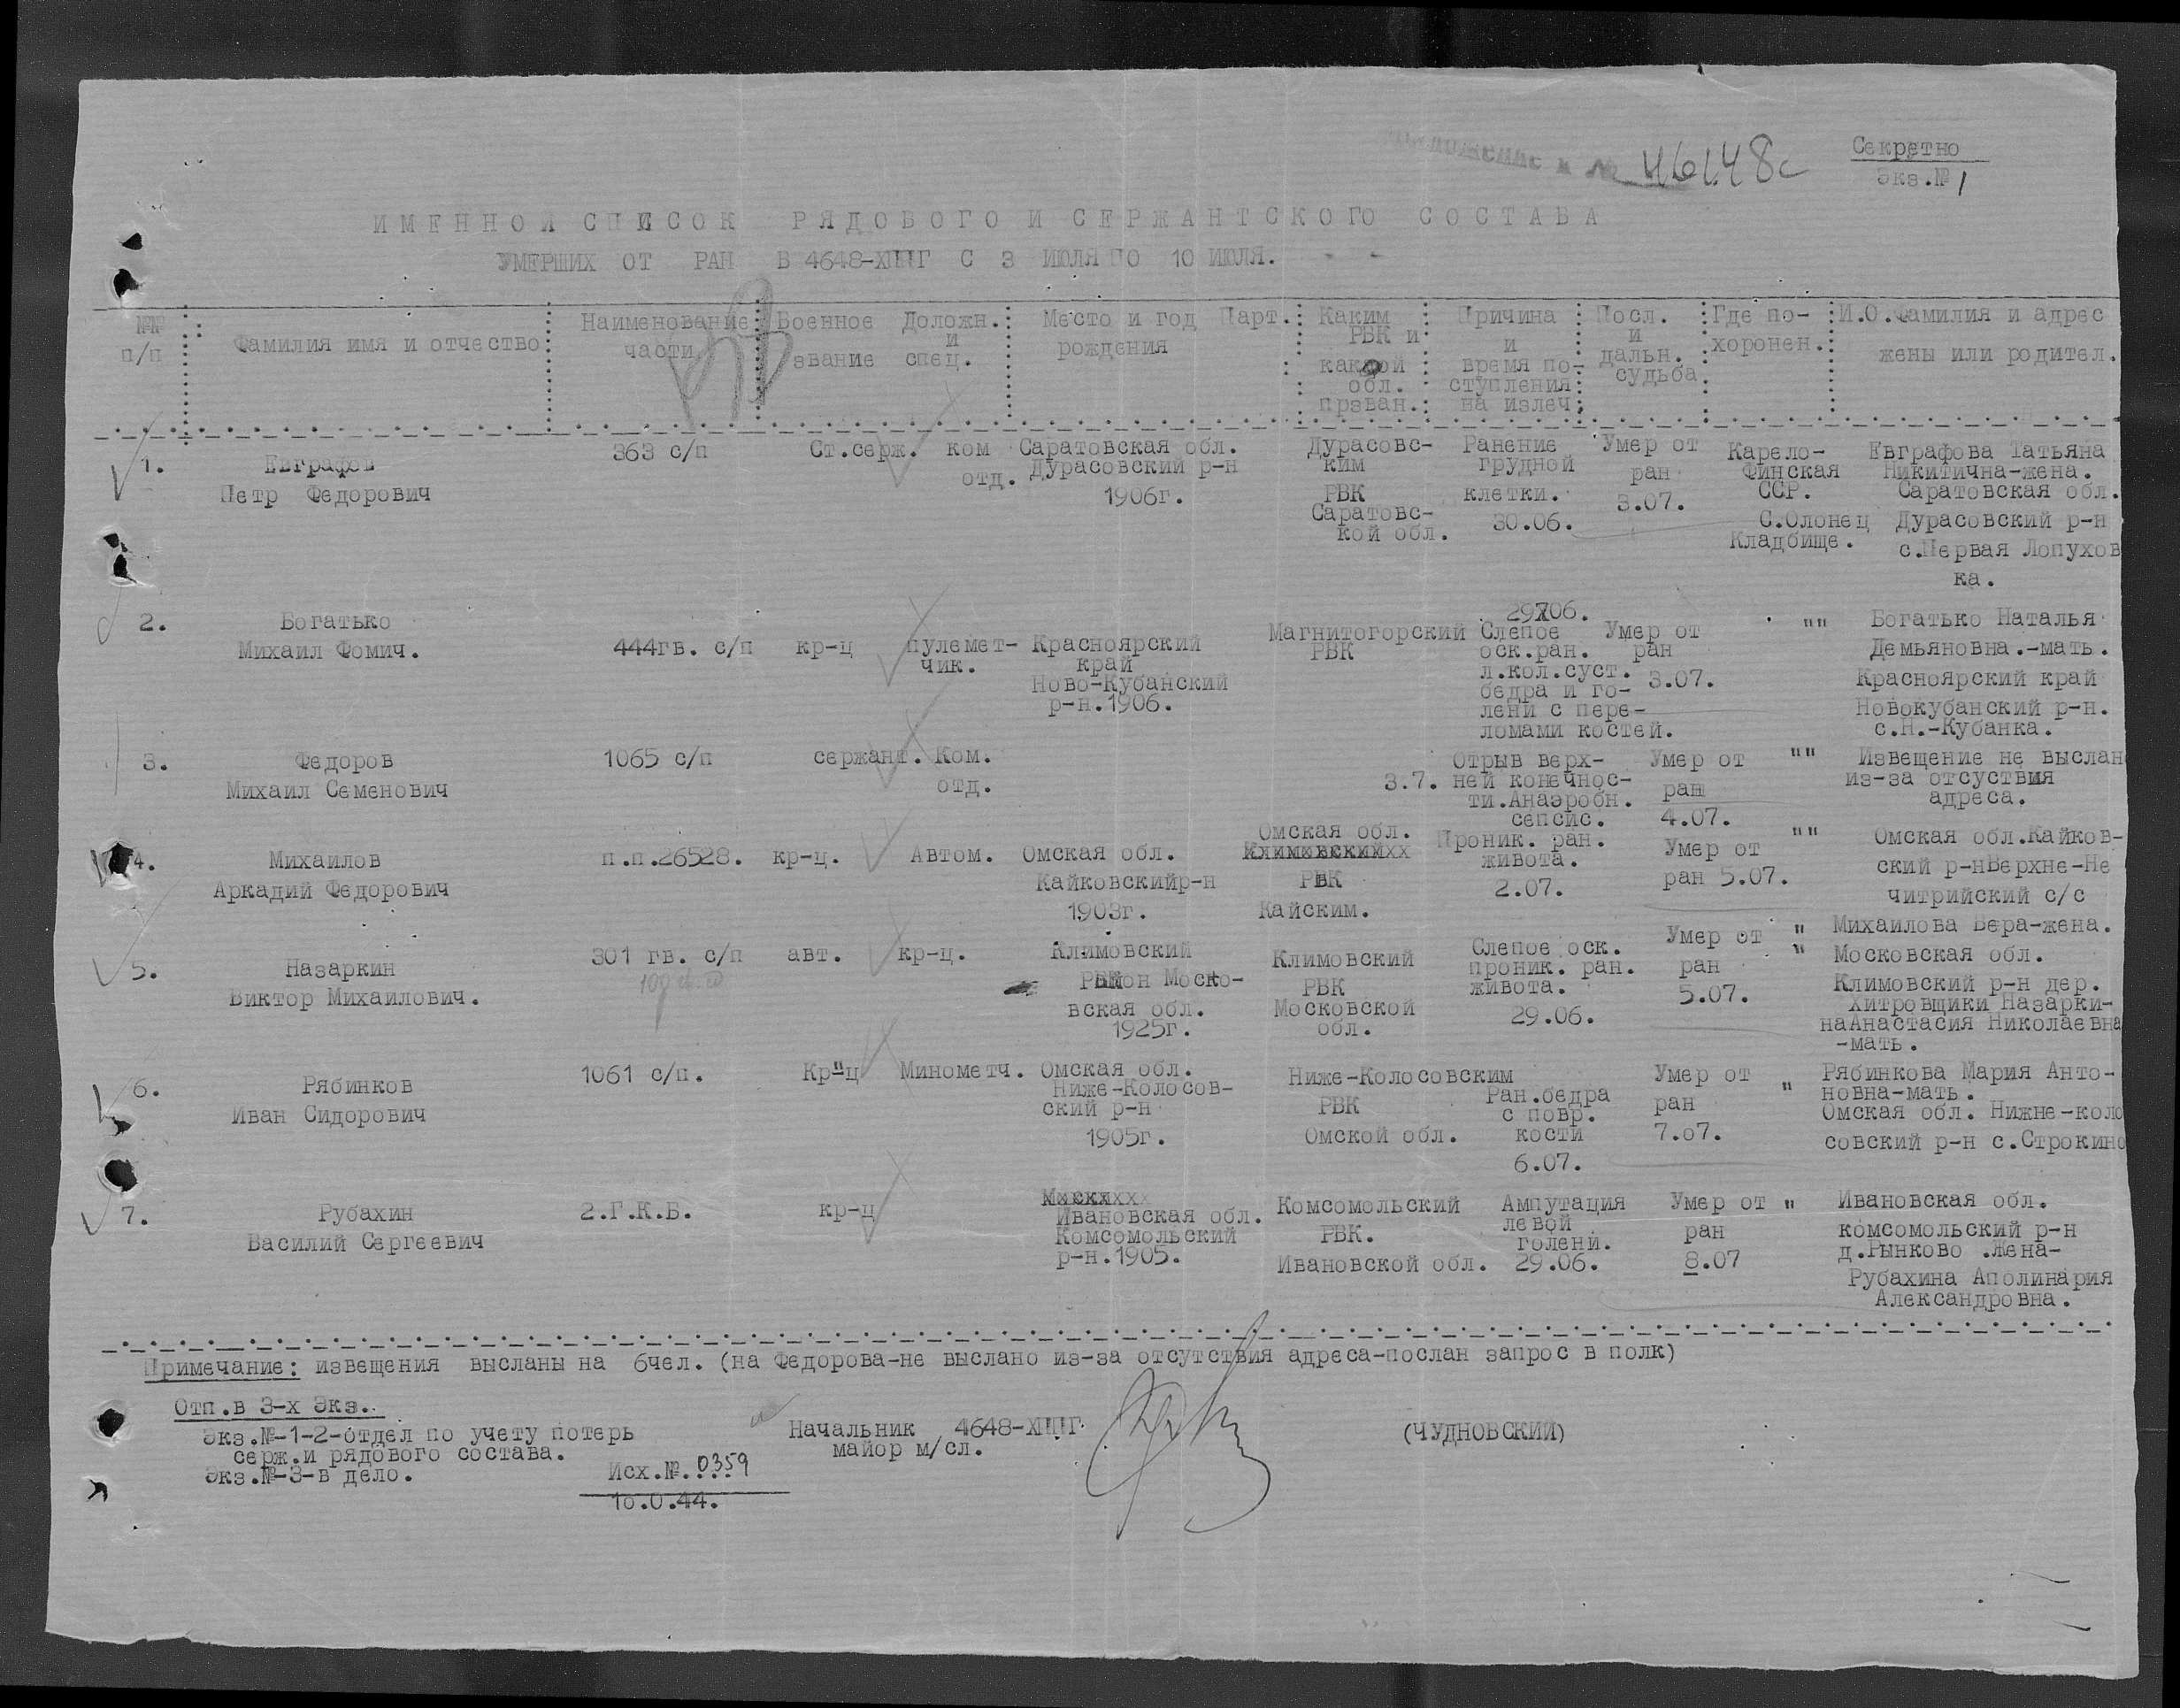 Секретно
Экз.№ 1
46148с
ИМЕННОЙ СПИСОК РЯДОВОГО И СЕРЖАНТСКОГО СОСТАВА
УМЕРШИХ ОТ РАН В 4648-ХППГ С 3 ИЮЛЯ ПО 10 ИЮЛЯ.
№№ п/п
Фамилия имя и отчество
Наименование части
Военное звание
Должн. и спец.
Место и год рождения
Парт.
Каким РВК и какрой обл. прзван.
Причина и время поступления на излеч.
Посл. и дальн. судьба
Где похоронен.
И.О.Фамилия и адрес жены или родител.
1.
Евграфов
Петр Федорович
363 с/п
Ст.серж.
ком
отд.
Саратовская обл.
Дурасовский р-н
1906г.
Дурасовс-
ким
РВК
Саратовс-
кой обл.
Ранение
грудной
клетки.
30.06.
Умер от
ран
3.07.
Карело-
Финская
ССР.
С.Олонец
Кладбище.
Евграфова Татьяна
Никитична-жена.
Саратовская обл.
Дурасовский р-н
с.Первая Лопухов
ка.
2.
Богатько
Михаил Фомич.
444гв. с/п
кр-ц
пулемет-
чик.
Красноярский
край
Ново-Кубанский
р-н.1906.
Магнитогорский
РВК
29.06.
Слепое
оск.ран.
л.кол.суст.
бедра и го-
лени с пере-
ломами костей.
Умер от
ран
3.07.
""
Богатько Наталья
Демьяновна.-мать.
Красноярский край
Новокубанский р-н.
с.Н.-Кубанка.
3.
Федоров
Михаил Семенович
1065 с/п
сержант.
Ком.
отд.
3.7.
Отрыв верх-
ней конечнос-
ти.Анаэробн.
сепсис.
Умер от
ран
4.07.
""
Извещение не выслан
из-за отсуствия
адреса.
4.
Михайлов
Аркадий Федорович
п.п.26528.
кр-ц.
Автом.
Омская обл.
Кайковскийр-н
1903г.
Омская обл.
Климовскийхх
РВК
Кайским.
Проник. ран.
живота.
2.07.
Умер от
ран 5.07.
""
Омская обл.Кайков-
ский р-нВерхне-Не
читрийский с/с
Михайлова Вера-жена.
5.
Назаркин
Виктор Михайлович.
301 гв. с/п
авт.
кр-ц.
Климовский
Район Моско-
вская обл.
1925г.
Климовский
РВК
Московской
обл.
Слепое оск.
проник. ран.
живота.
29.06.
Умер от
ран
5.07.
""
Московская обл.
Климовский р-н дер.
Хитровщики Назарки-
наАнастасия Николаевна
-мать.
6.
Рябинков
Иван Сидорович
1061 с/п.
Кр"ц
Минометч.
Омская обл.
Ниже-Колосов-
ский р-н
1905г.
Ниже-Колосовским
РВК
Омской обл.
Ран.бедра
с повр.
кости
6.07.
Умер от
ран
7.о7.
"
Рябинкова Мария Анто-
новна-мать.
Омская обл. Нижне-коло
совский р-н с.Строкино
7.
Рубахин
Василий Сергеевич
2.Г.К.Б.
кр-ц
Ивановская обл.
Комсомольский
р-н.1905.
Комсомольский
РВК.
Ивановской обл.
Ампутация
левой
голени.
29.06.
Умер от
ран
8.07
"
Ивановская обл.
комсомольский р-н
д.Рынково .Жена-
Рубахина Аполинария
Александровна.
Примечание: извещения высланы на 6чел. (на Федорова-не выслано из-за отсутствия адреса-послан запрос в полк)
Отп.в 3-х Экз.
Экз.№-1-2-отдел по учету потерь
серж.и рядового состава.
Экз.№-3-в дело.
Исх.№.0359
1о.0.44.
Начальник 4648-ХППГ
майор м/сл.
(ЧУДНОВСКИЙ)